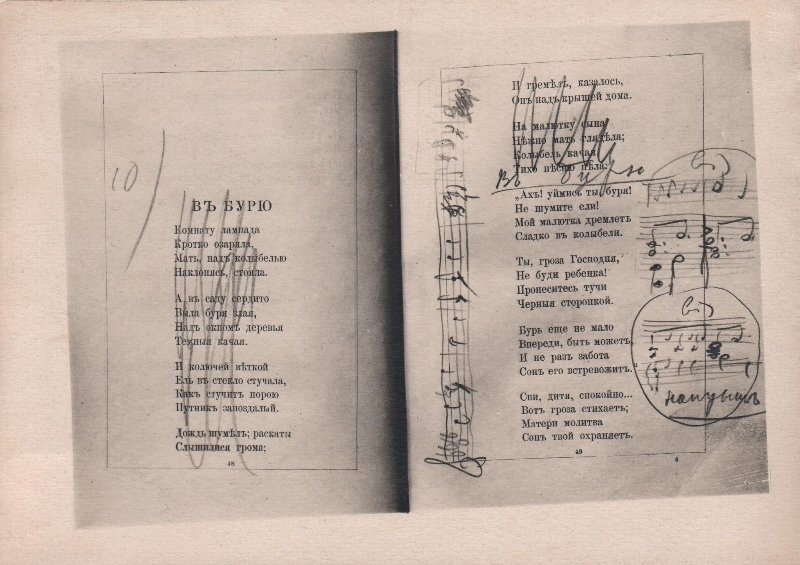 10)
ВЪ БУРЮ
Комнату лампада
Кротко озаряла,
Мать, надъ колыбелью
Наклонясь, стояла.
А въ саду сердито
Выла буря злая,
Надъ окномъ деревья
Темныя качая.
И колючей вѣткой
Ель въ стекло стучала,
Какъ стучитъ порою
Путникъ запоздалый.
Дождь шумѣлъ; раскаты
Слышалися грома;
48
И гремѣлъ, казалось,
Онъ надъ крышей дома.
На малютку сына
Нѣжно мать глядѣла;
Колыбель качая,
Тихо пѣсню пѣла:
Въ бурю
„Ахъ! уймись ты, буря!
Не шумите ели!
Мой малютка дремлетъ
Сладко въ колыбели.
Ты, гроза Господня,
Не буди ребенка!
Пронеситесь тучи
Черныя сторонкой.
Бурь еще не мало
Впереди, быть можетъ,
И не разъ забота
Сонъ его встревожитъ.
Спи, дитя, спокойно...
Вотъ гроза стихаетъ;
Матери молитва
Сонъ твой охраняетъ.
49
4